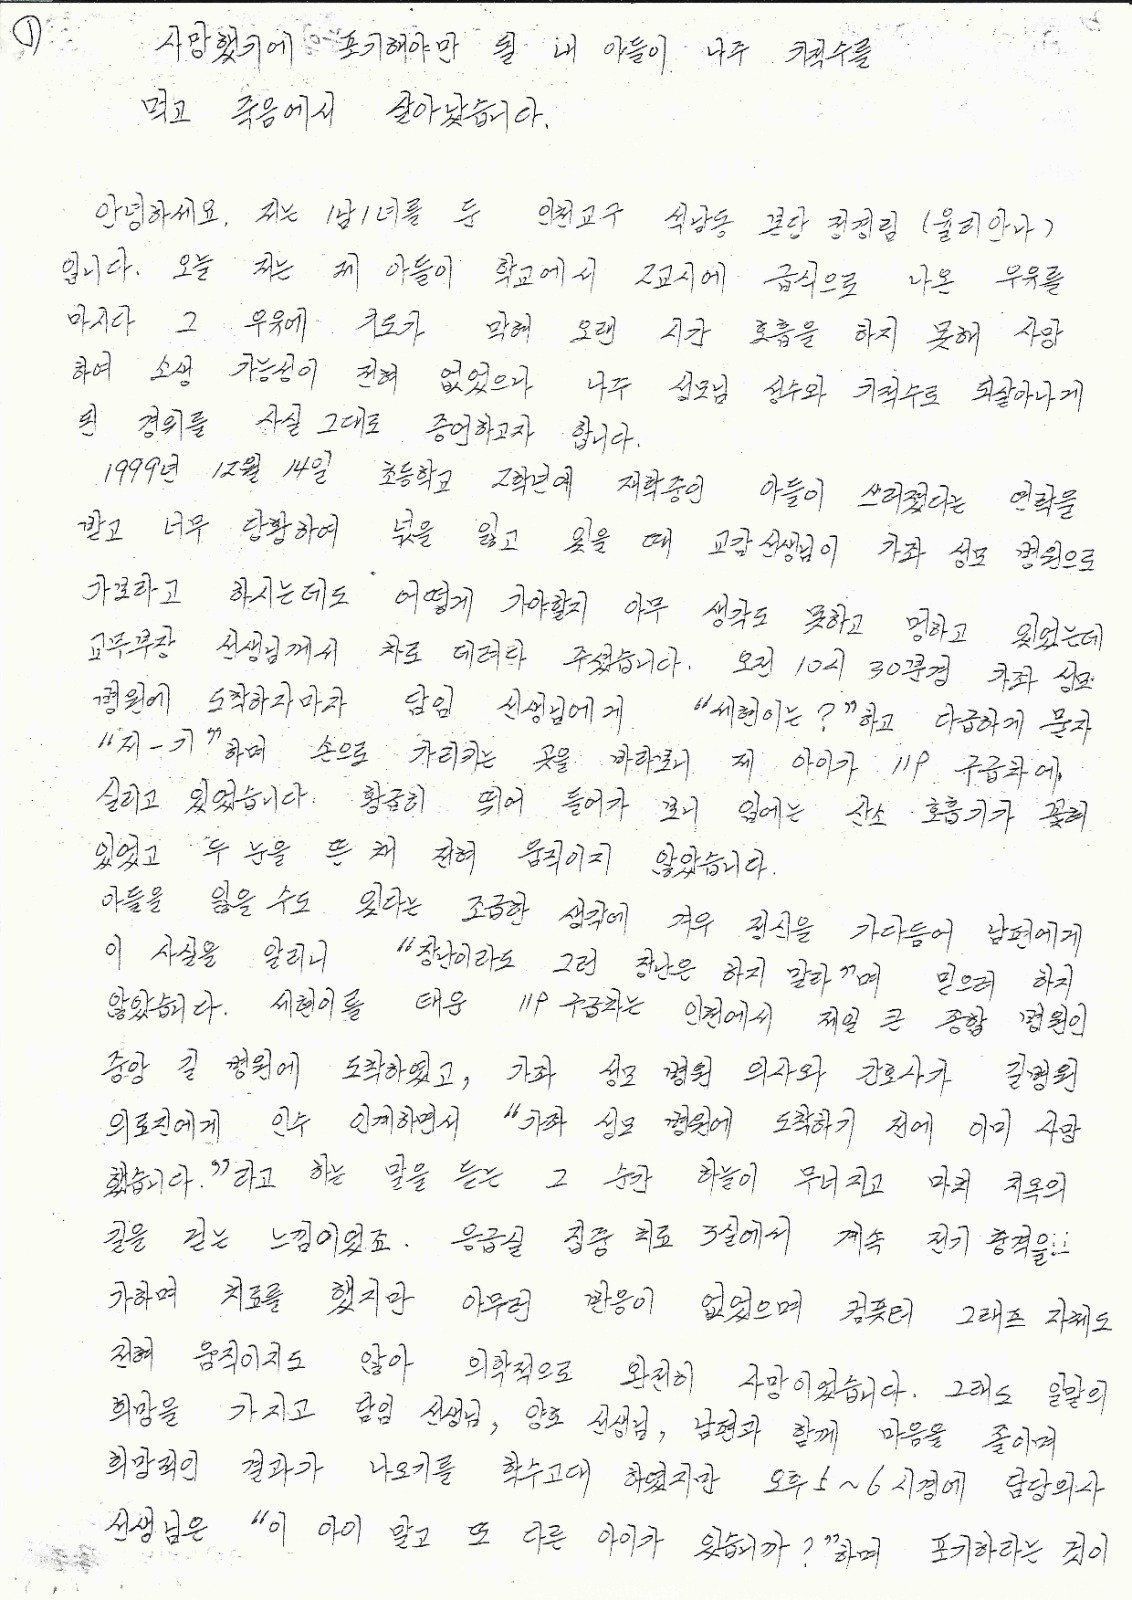 ①
사망했기에 포기해야만 될 내 아들이 나주 기적수를
먹고 죽음에서 살아났습니다.
안녕하세요. 저는 1남1녀를 둔 인천교구 석남동 본당 정경림 (율리안나)
입니다. 오늘 저는 제 아들이 학교에서 2교시에 급식으로 나온 우유를
마시다 그 우유에 기도가 막혀 오랜 시간 호흡을 하지 못해 사망
하여 소생 가능성이 전혀 없었으나 나주 성모님 성수와 기적수로 되살아나게
된 경위를 사실 그대로 증언하고자 합니다.
1999년 12월 14일 초등학교 2학년에 재학중인 아들이 쓰러졌다는 연락을
받고 너무 당황하여 넋을 잃고 있을 때 교감선생님이 가좌 성모 병원으로
가보라고 하시는데도 어떻게 가야할지 아무 생각도 못하고 멍하고 있었는데
교무부장 선생님께서 차로 데려다 주셨습니다. 오전 10시 30분경 가좌 성모
병원에 도착하자마자 담임 선생님에게 "세현이는?"하고 다급하게 묻자
"저-기"하며 손으로 가리키는 곳을 바라보니 제 아이가 119 구급차에
실리고 있었습니다. 황급히 뛰어 들어가 보니 입에는 산소 호흡기가 꽂혀
있었고 두 눈을 뜬 채 전혀 움직이지 않았습니다.
아들을 잃을 수도 있다는 조급한 생각에 겨우 정신을 가다듬어 남편에게
이 사실을 알리니 "장난이라도 그런 장난은 하지 말라"며 믿으려 하지
않았습니다. 세현이를 태운 119 구급차는 인천에서 제일 큰 종합 병원인
중앙 길 병원에 도착하였고, 가좌 성모 병원 의사와 간호사가 길병원
의료진에게 인수 인계하면서 "가좌 성모 병원에 도착하기 전에 이미 사망
했습니다."라고 하는 말을 듣는 그 순간 하늘이 무너지고 마치 지옥의
길을 걷는 느낌이었죠. 응급실 집중 치료 3실에서 계속 전기 충격을
가하며 치료를 했지만 아무런 반응이 없었으며 컴퓨터 그래프 자체도
전혀 움직이지도 않아 의학적으로 완전히 사망이었습니다. 그래도 일말의
희망을 가지고 담임 선생님, 양호 선생님, 남편과 함께 마음을 졸이며
희망적인 결과가 나오기를 학수고대 하였지만 오후 5~6시경에 담당의사
선생님은 "이 아이 말고 또 다른 아이가 있습니까?"하며 포기하라는 것이